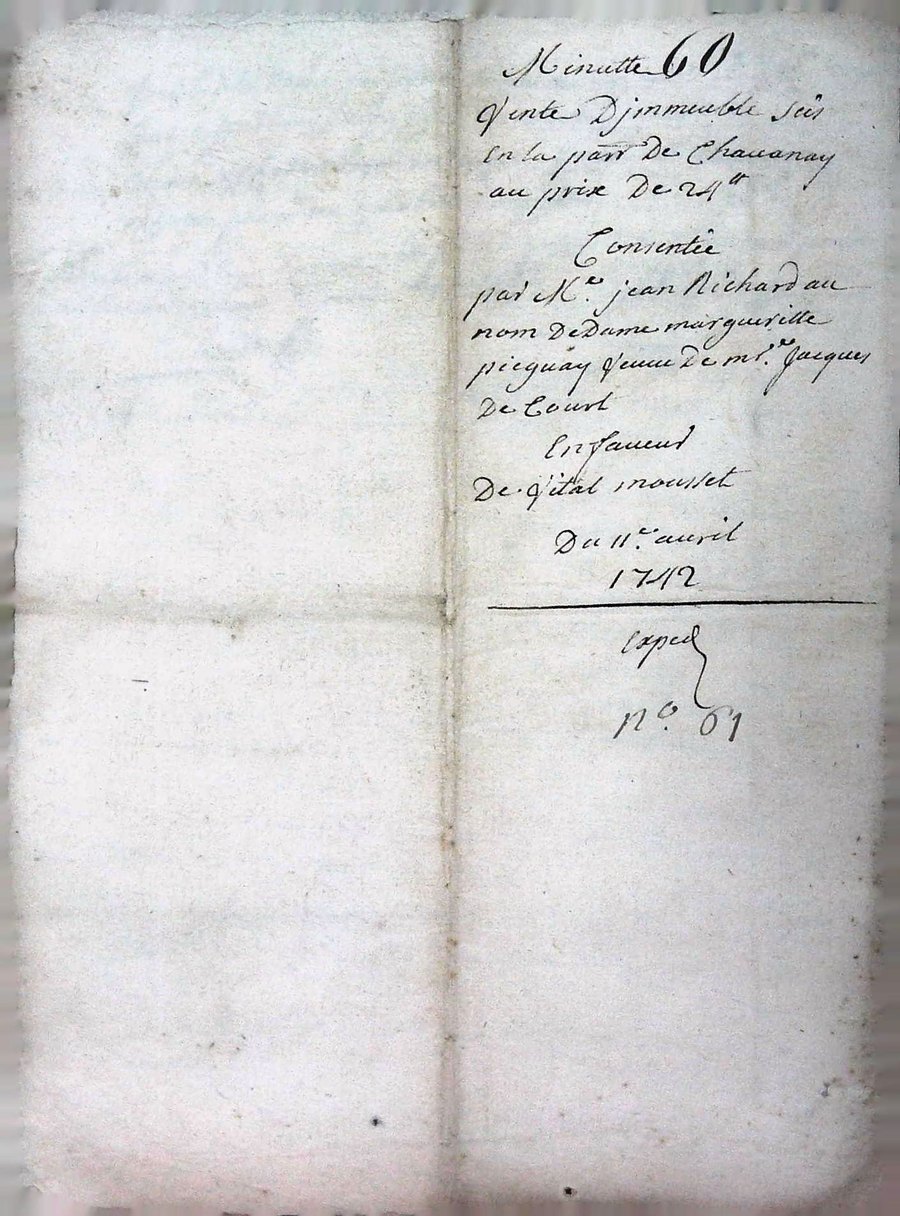 Minutte 60
Vente Djmmeuble sis
en la parr De Chauanay
au prix De 24tt
Consentie
par Me. jean Richard au
nom De Dame margueritte
picquay Veuue De mre. Jacques
De Court
En faueur
De Vital mousset
Du 11e. auril
1742
Exped
no. 61